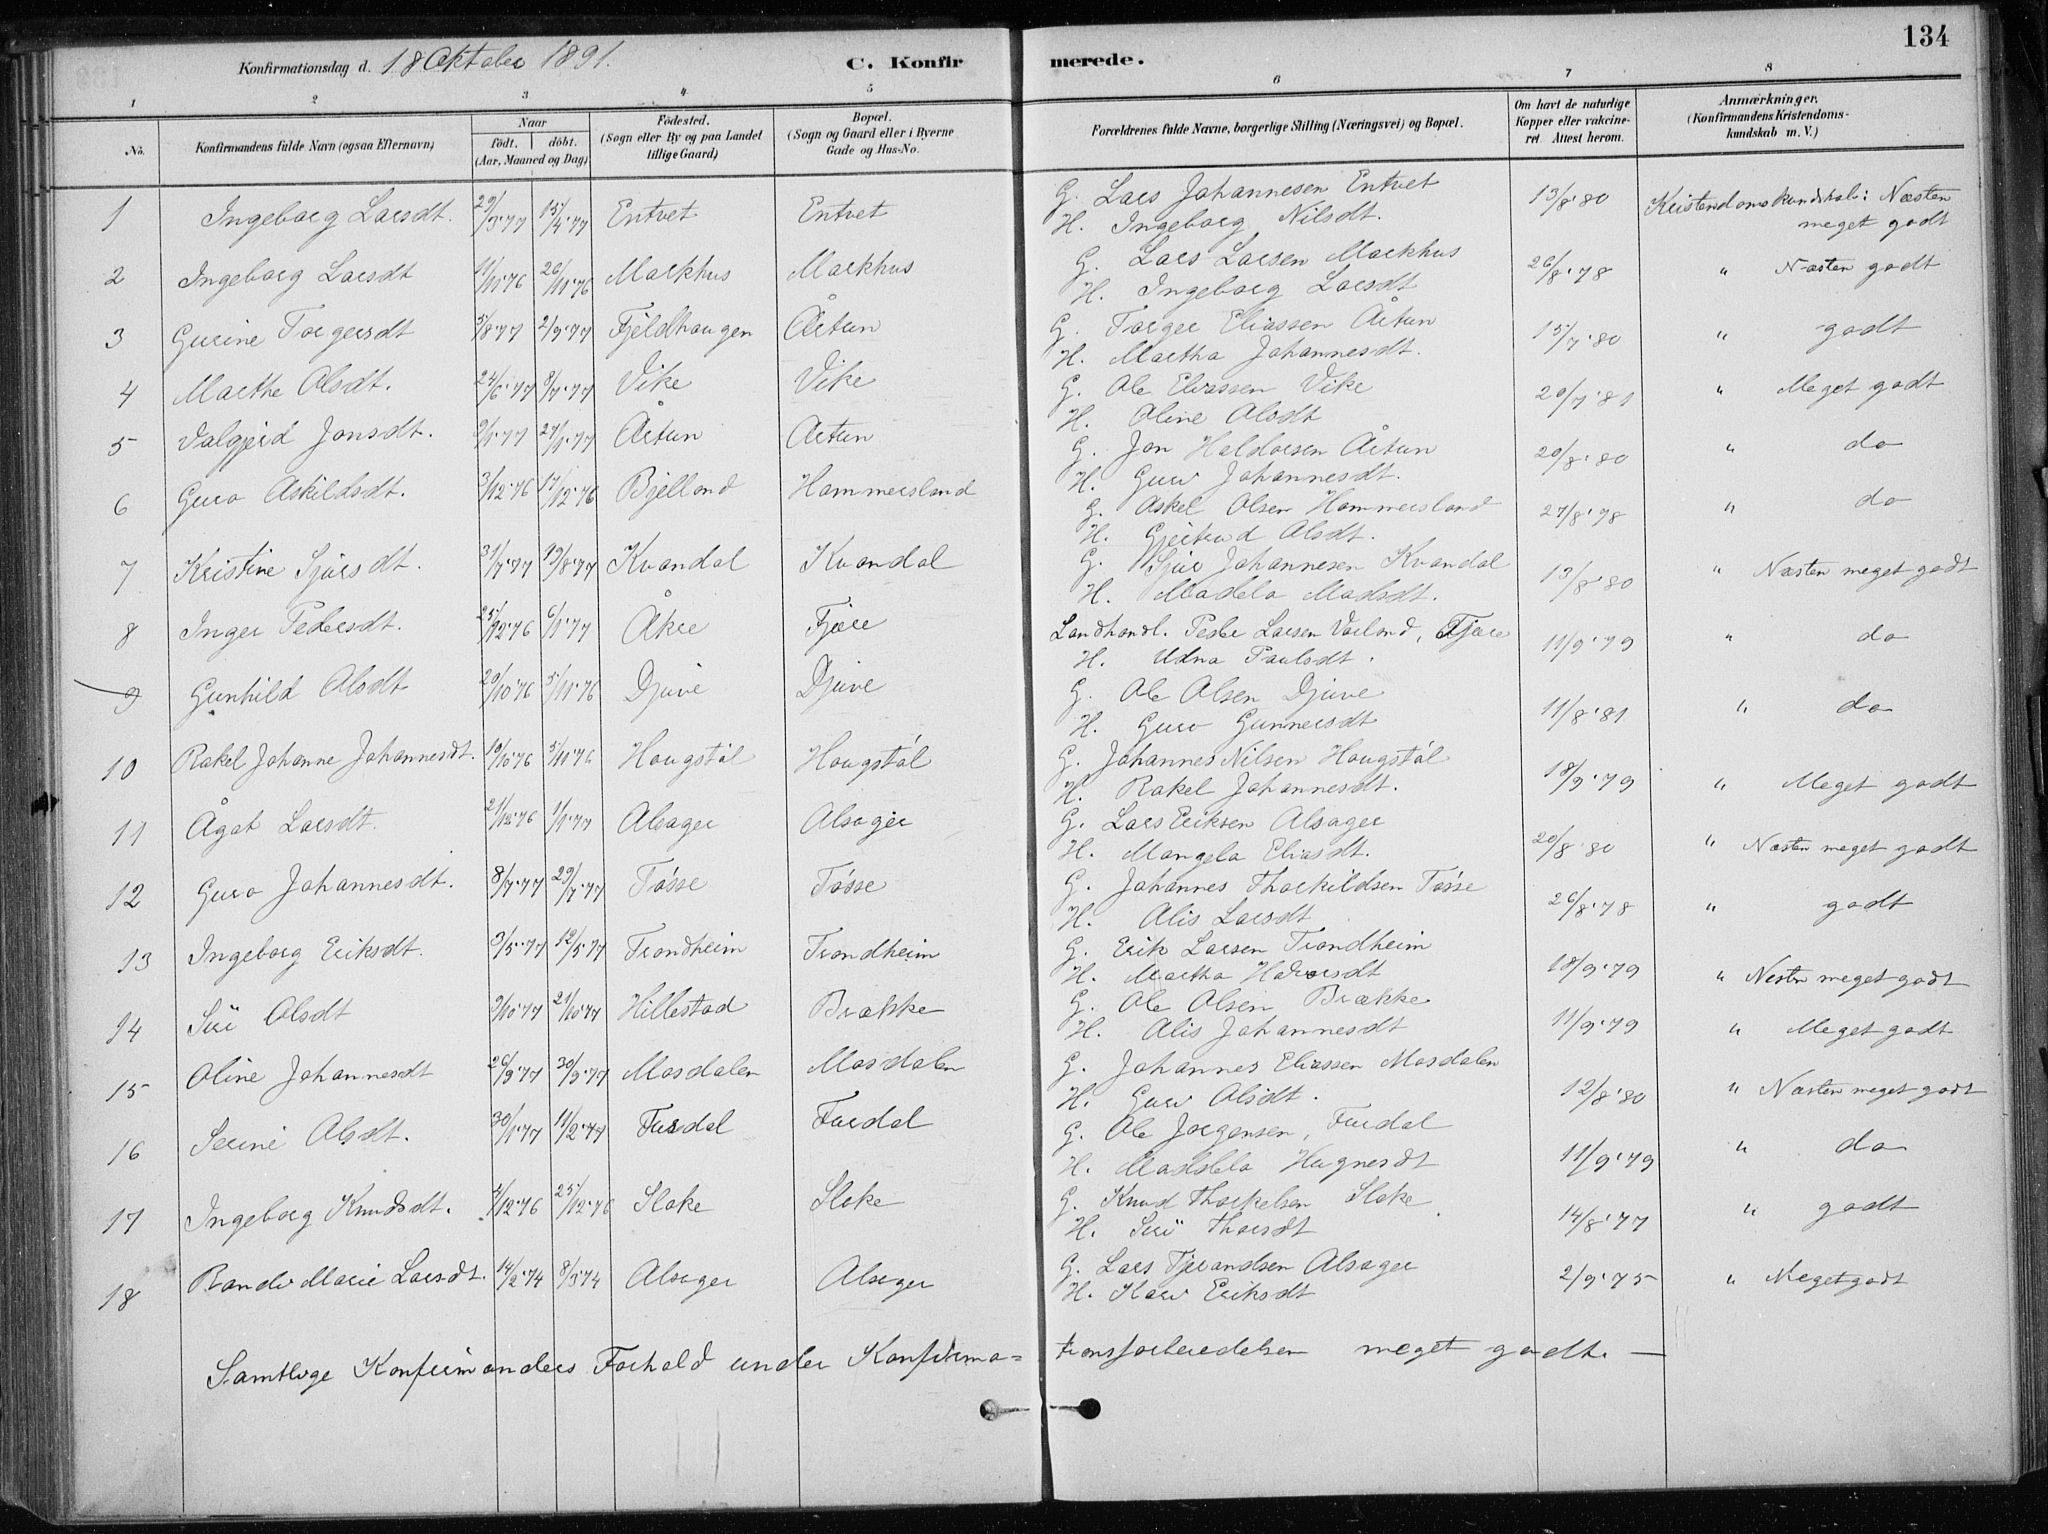 134
Konfirmationsdag d. 18 Oktober 1891.
C. Konfirmerede.
1 2 3 4 5 6 7 8
No. Konfirmandens fulde Navn (ogsaa Efternavn) Naar født. døbt. (Aar, Maaned og Dag) Fødested. (Sogn eller By og paa Landet tillige Gaard) Bopæl. (Sogn og Gaard eller i Byerne Gade og Hus-No. Forældrenes fulde Navne, borgerlige Stilling (Næringsvei) og Bopæl. Om havt de naturlige Kopper eller vaccineret. Attest herom. Anmærkninger. (Konfirmandens Kristendomskundskab m. V.)
1 Ingeborg Larsdt. 29/3 77 15/4 77 Entvet Entvet G. Lars Johannesen Entvet 13/8 80 Kristendomskundskab: Næsten
H. Ingeborg Nilsdt. meget godt
2 Ingeborg Larsdt 11/11 76 26/11 76 Markhus Markhus G. Lars Larsen Markhus 26/8 78 " Næsten godt
H. Ingeborg Larsdt
3 Gurine Torgersdt 5/8 77 2/9 77 Fjeldhaugen Årtun G. Torger Eliassen Årtun 15/7 80 " godt
H. Martha Johannesdt.
4 Marthe Olsdt. 24/6 77 8/7 77 Vike Vike G. Ole Eliassen Vike 20/7 81 " Meget godt
H. Oline Olsdt
5 Valgjerd Jonsdt. 9/1 77 27/1 77 Årtun Artun G. Jon Haldorsen Årtun 20/8 80 " do
H. Guro Johannesdt.
6 Guro Askildsdt. 3/12 76 17/12 76 Bjelland Hammersland G. Askel Olsen Hammersland 27/8 78 " do
H. Gjertrud Olsdt.
7 Kristine Sjursdt. 31/7 77 19/8 77 Kvandal Kvandal G. Sjur Johannesen Kvandal 13/8 80 " Næsten meget godt
H. Madela Madsdt.
8 Inger Pedersdt. 25/12 76 6/1 77 Åkre Fjære Landhandl. Peder Larsen Varland, Fjære 11/9 79 " do
H. Udna Paulsdt.
9 Gunhild Olsdt 20/10 76 5/11 76 Djuve Djuve G. Ole Olsen Djuve 11/8 81 " do
H. Guro Gunnersdt
10 Rakel Johanne Johannesdt. 10/10 76 5/11 76 Haugstøl Haugstøl G. Johannes Nilsen Haugstøl 18/9 79 " Meget godt
H. Rakel Johannesdt.
11 Ågat Larsdt. 21/12 76 1/1 77 Alsager Alsager G. Lars Eriksen Alsager 20/8 80 " Næsten meget godt
H. Mangela Eliasdt.
12 Guro Johannesdt. 8/7 77 29/7 77 Tøsse Tøsse G. Johannes Thorkildsen Tøsse 26/8 78 " godt
H. Alis Larsdt
13 Ingeborg Eriksdt. 3/5 77 12/5 77 Trondheim Trondheim G. Erik Larsen Trondheim 18/9 79 " Nesten meget godt
H. Martha Halvorsdt
14 Siri Olsdt 9/10 77 21/10 77 Hillestad Brække G. Ole Olsen Brække 11/9 79 " Meget godt
H. Alis Johannesdt
15 Oline Johannesdt 26/9 77 30/9 77 Mosdalen Mosdalen G. Johannes Eliassen Mosdalen 12/8 80 " Næsten meget godt
H. Guro Olsdt.
16 Serine Olsdt. 30/1 77 11/2 77 Furdal Furdal G. Ole Jorgensen, Furdal 11/9 79 " do
H. Maddela Hagnesdt
17 Ingeborg Knudsdt. 4/12 76 25/12 76 Sloke Sloke G. Knud Thorkelsen Sloke 14/8 77 " godt
H. Siri Thorsdt
18 Randi Marie Larsdt. 14/2 74 8/3 74 Alsager Alsager G. Lars Tjerandsen Alsager 2/9 75 " Meget godt
H. Kari Eriksdt
Samtlige Konfirmanders Forhold under Konfirma=tionsforberedelsen meget godt. —